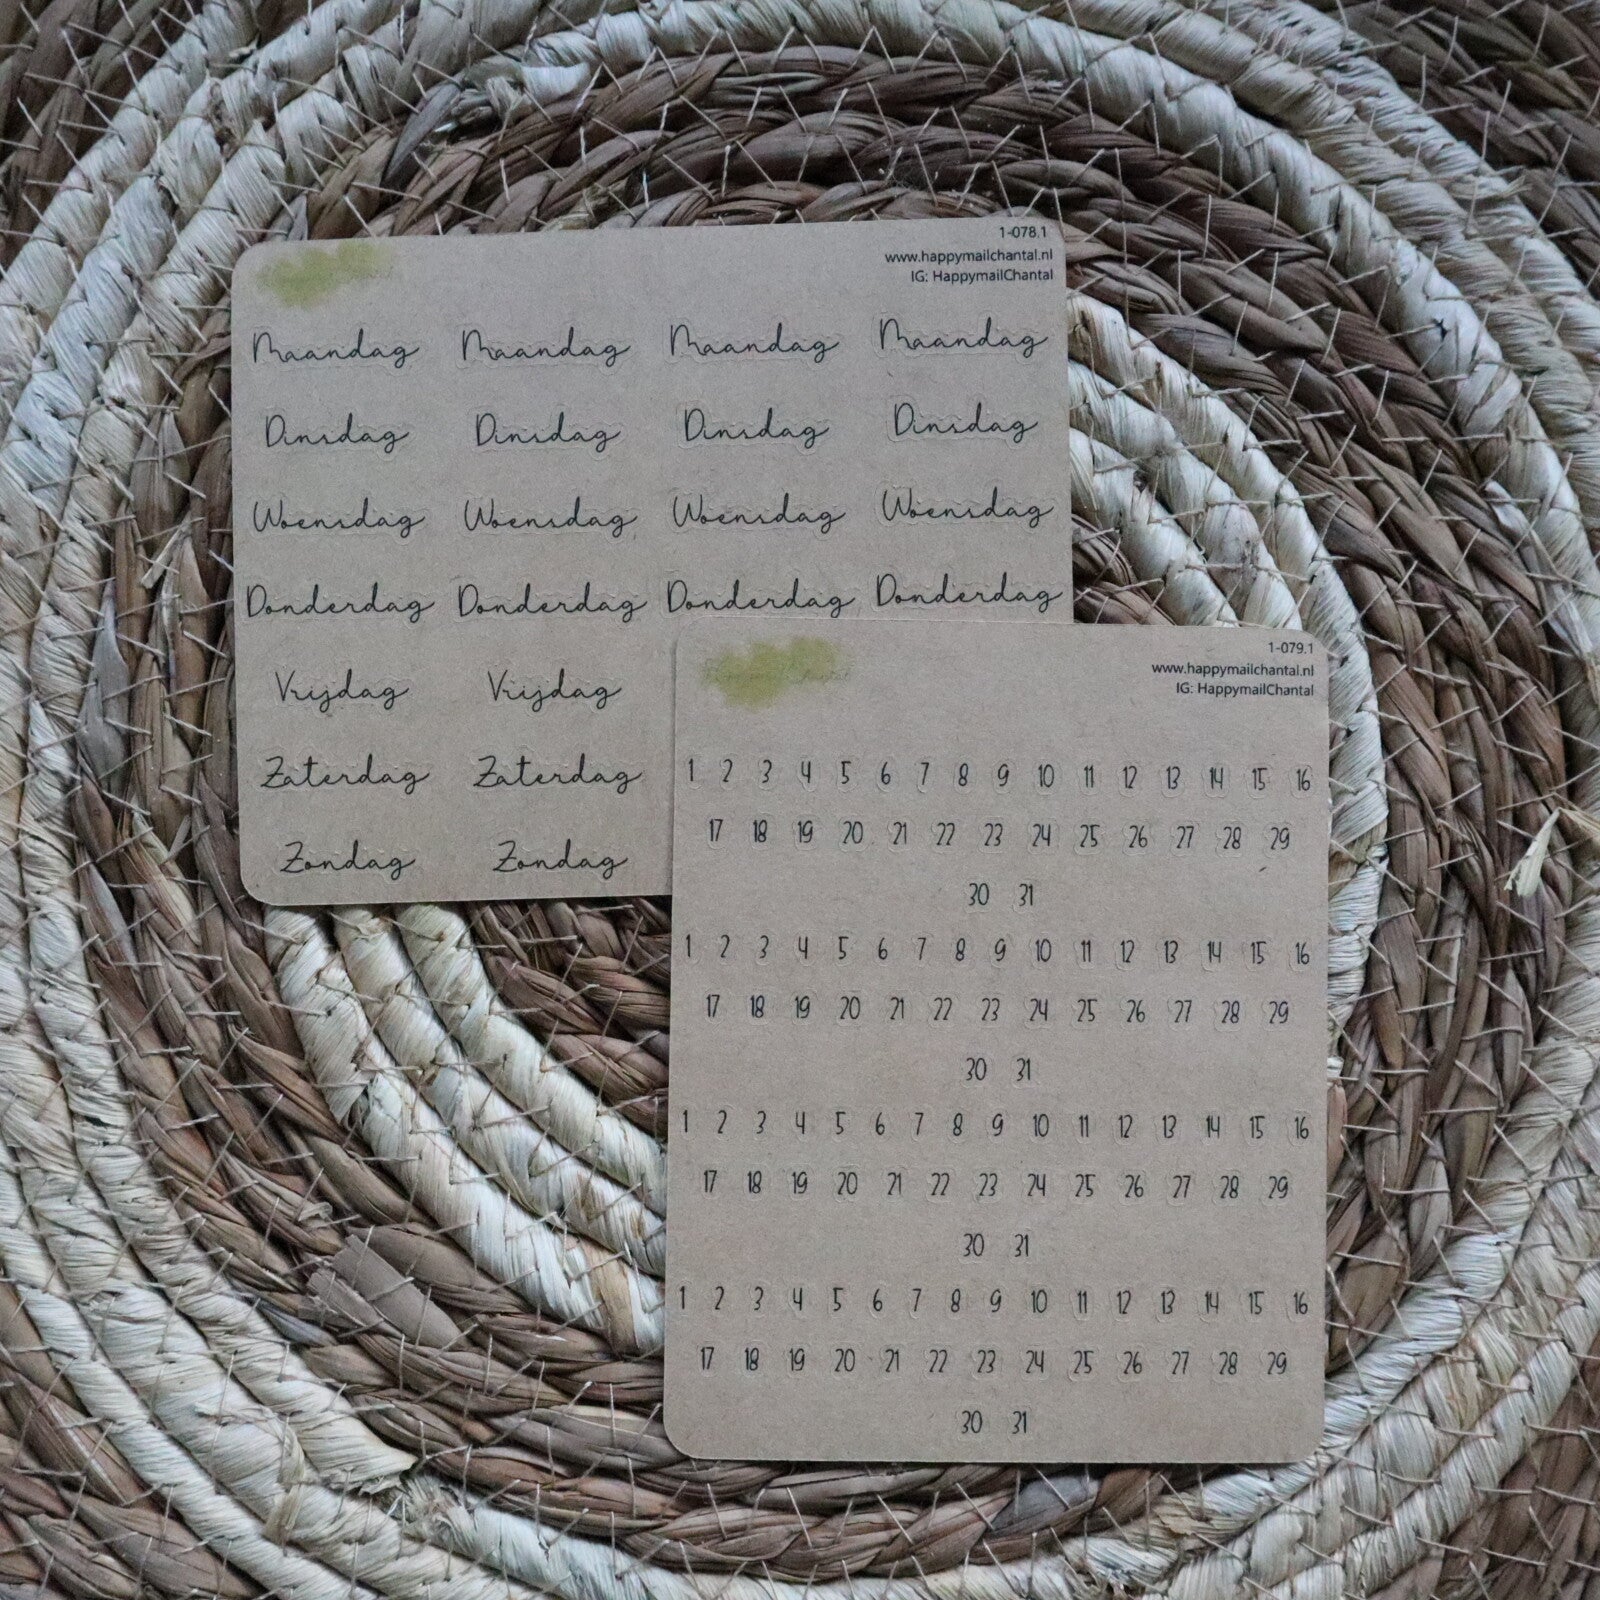 1-078.1
www.happymailchantal.nl
IG: HappymailChantal
Maandag Maandag Maandag Maandag
Dinsdag Dinsdag Dinsdag Dinsdag
Woensdag Woensdag Woensdag Woensdag
Donderdag Donderdag Donderdag Donderdag
Vrijdag Vrijdag
Zaterdag Zaterdag
Zondag Zondag
1-079.1
www.happymailchantal.nl
IG: HappymailChantal
1 2 3 4 5 6 7 8 9 10 11 12 13 14 15 16
17 18 19 20 21 22 23 24 25 26 27 28 29
30 31
1 2 3 4 5 6 7 8 9 10 11 12 13 14 15 16
17 18 19 20 21 22 23 24 25 26 27 28 29
30 31
1 2 3 4 5 6 7 8 9 10 11 12 13 14 15 16
17 18 19 20 21 22 23 24 25 26 27 28 29
30 31
1 2 3 4 5 6 7 8 9 10 11 12 13 14 15 16
17 18 19 20 21 22 23 24 25 26 27 28 29
30 31